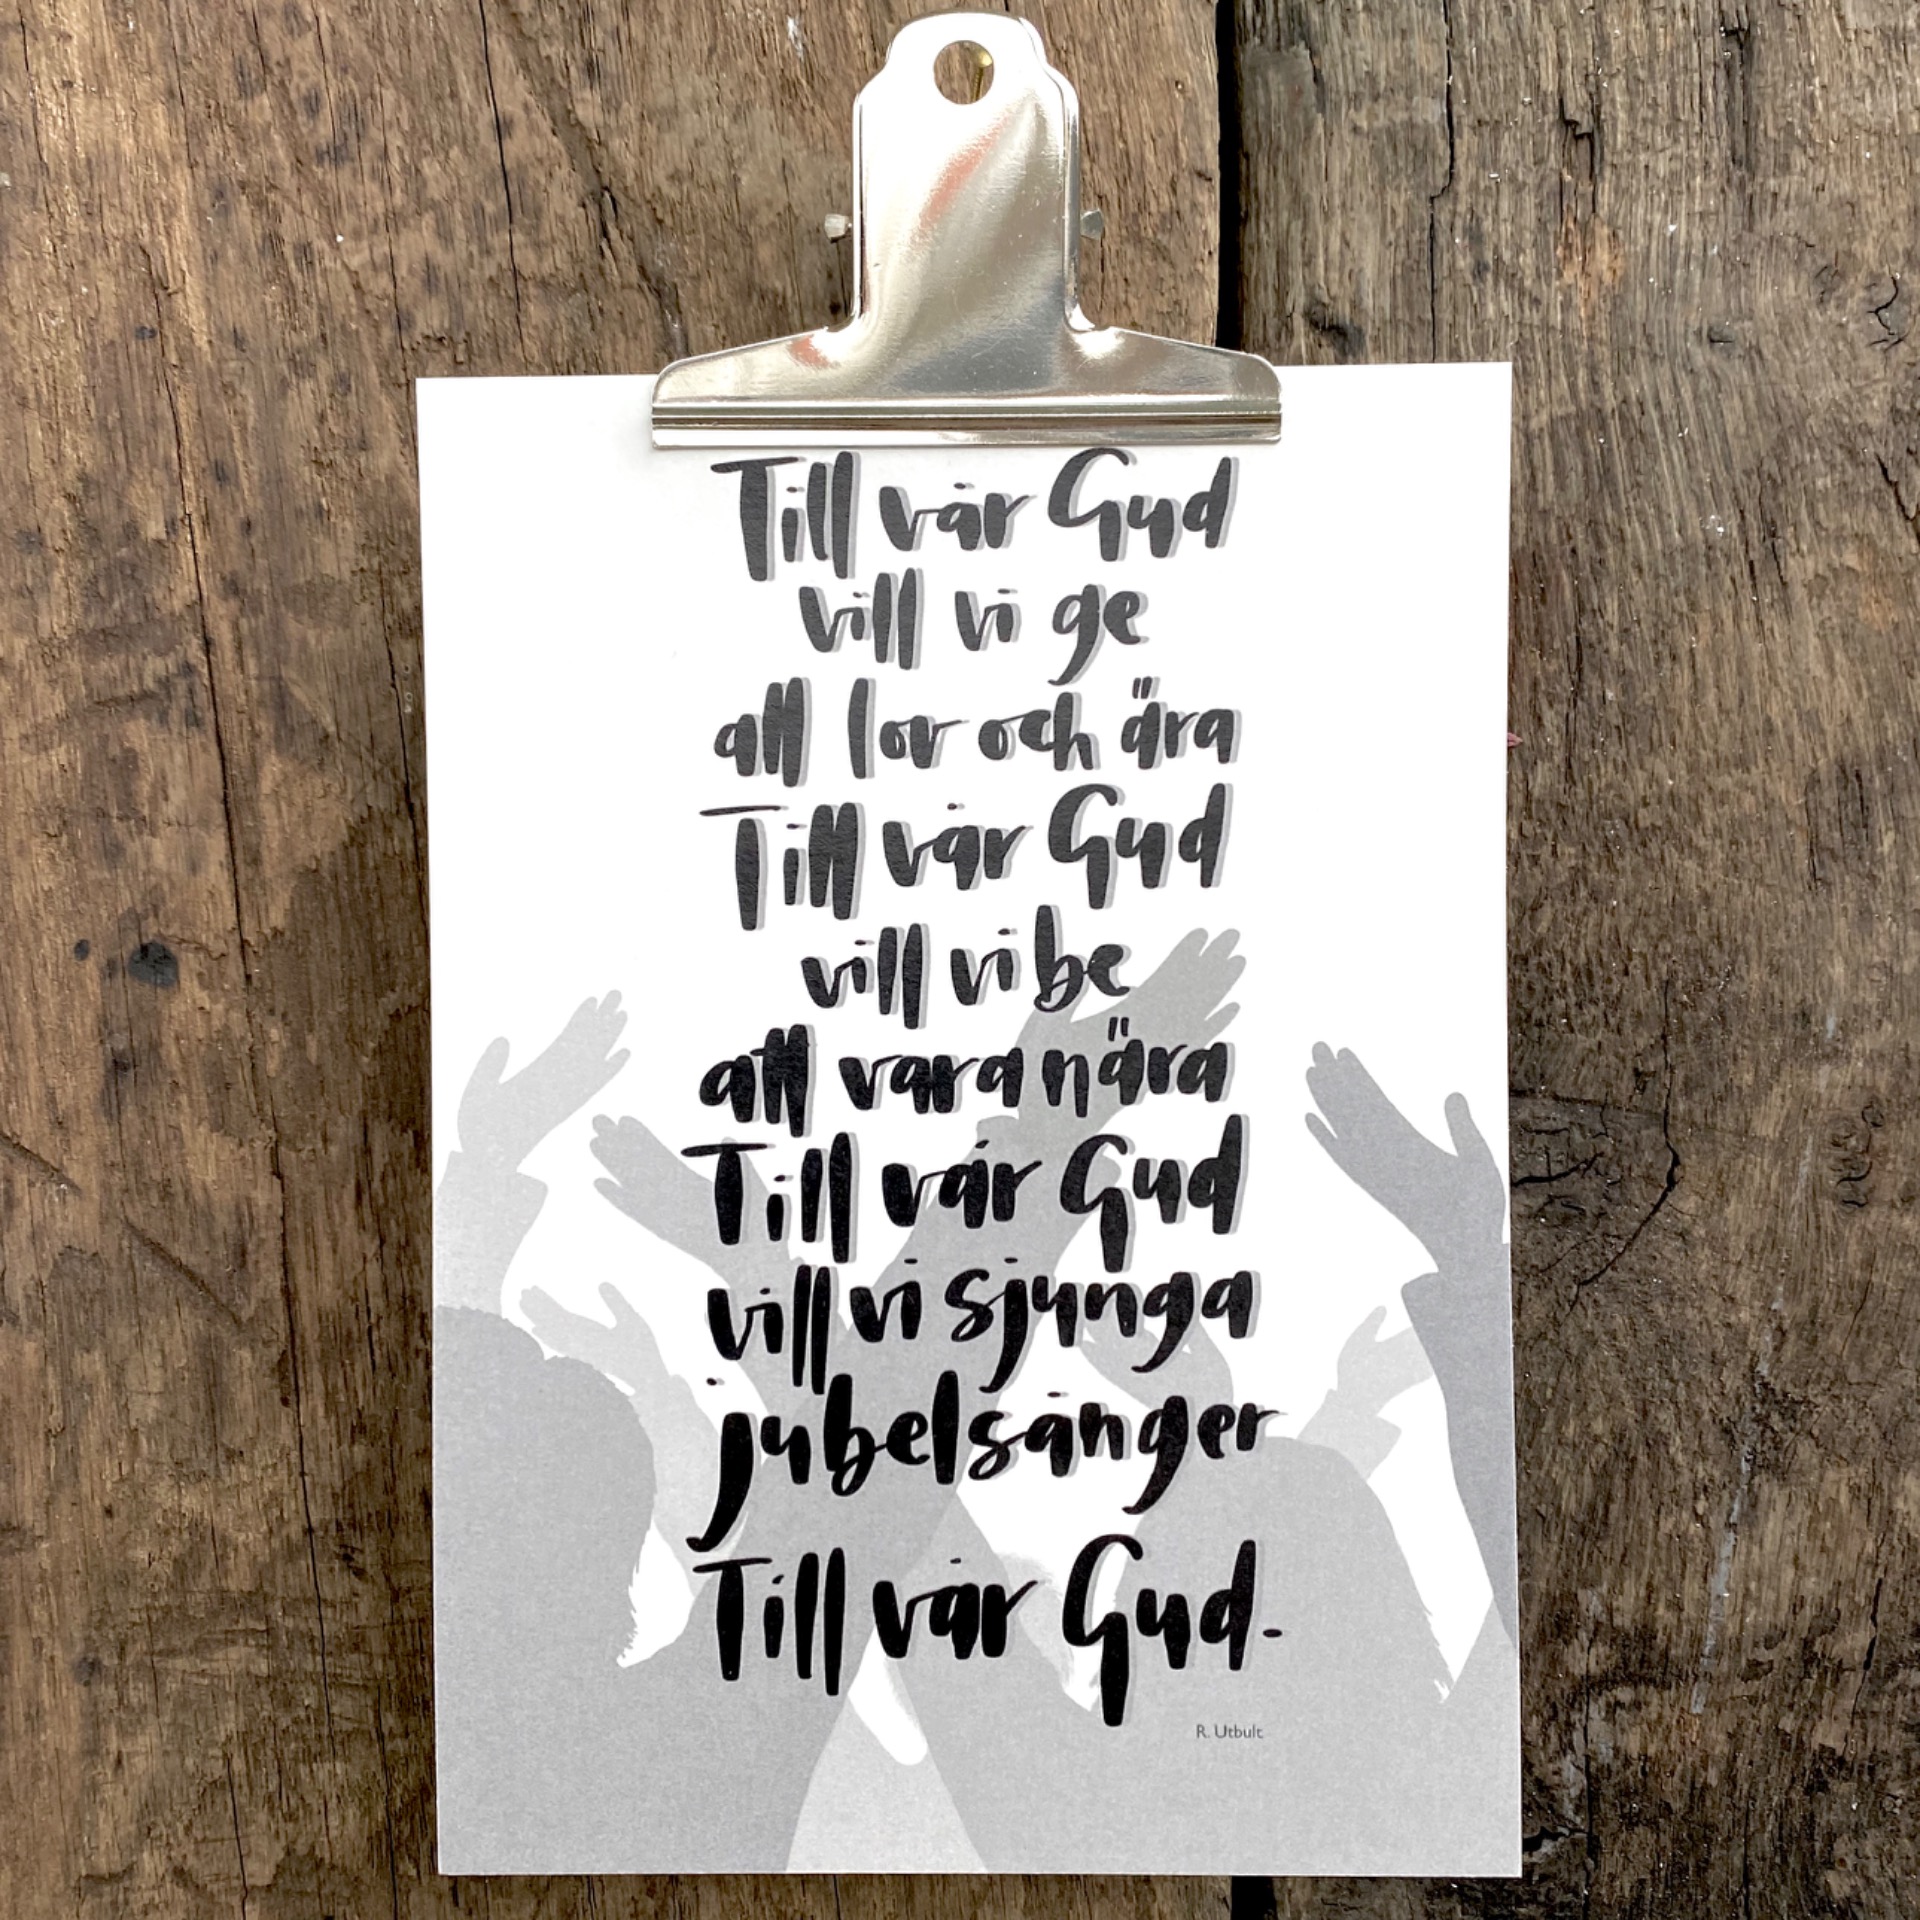 Till vår Gud
vill vi ge
all lov och ära
Till vår Gud
vill vi be
att vara nära
Till vår Gud
vill vi sjunga
jubelsånger
Till vår Gud.
R. Utbult